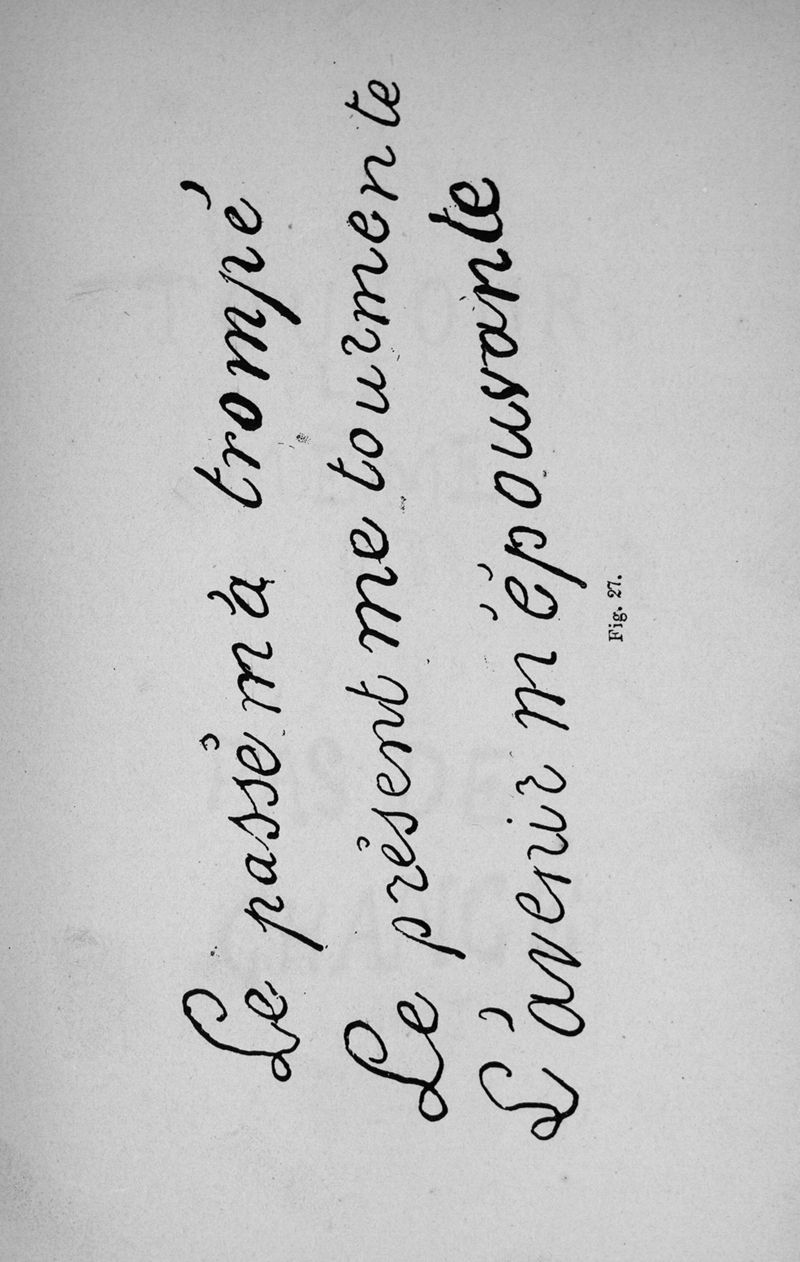 Le passé m'a trompé
Le présent me tourmente
L'avenir m'épouvante
Fig. 27.